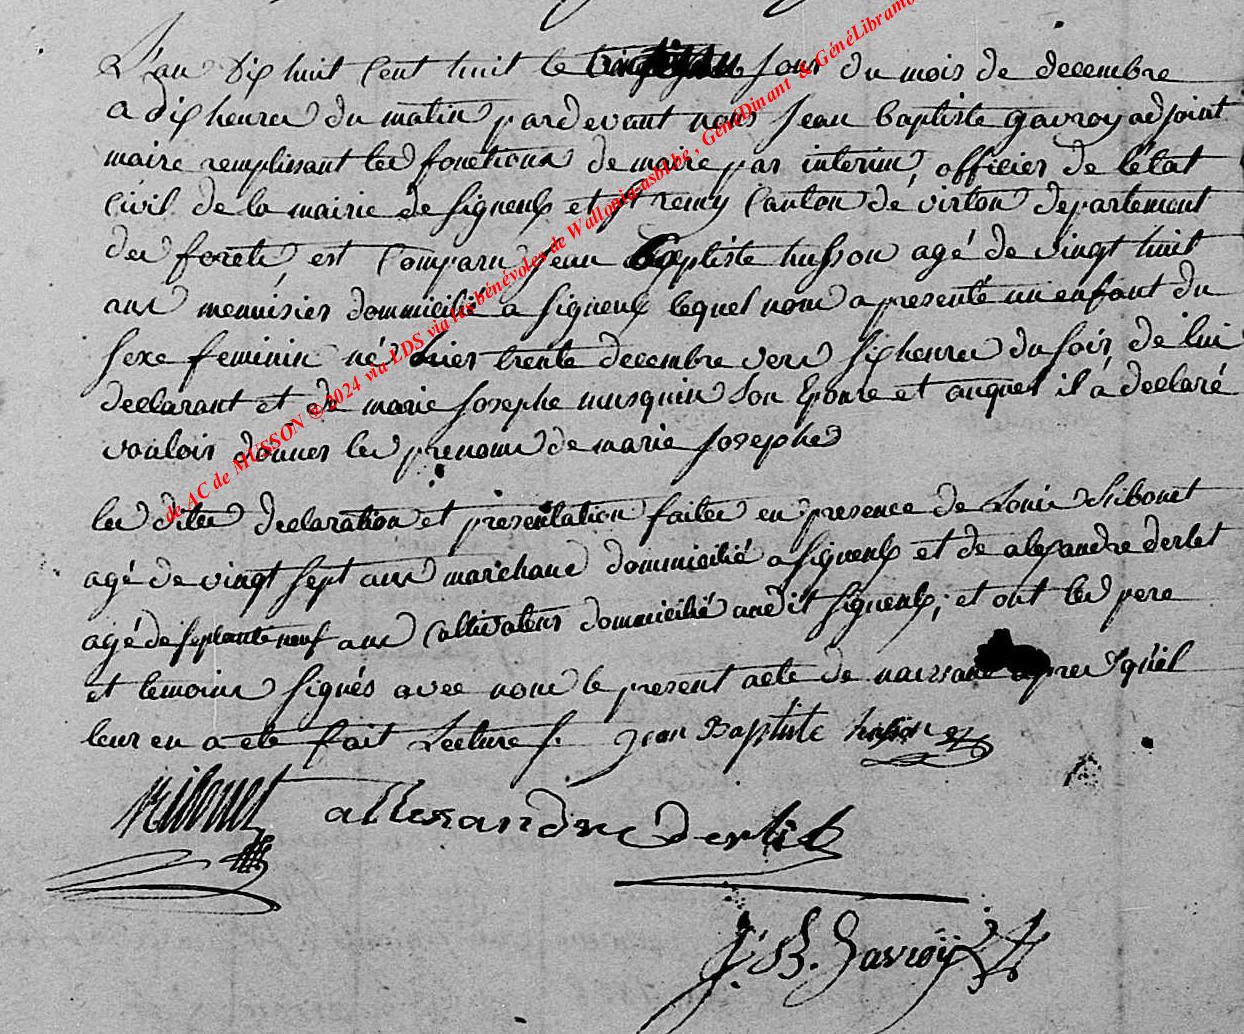 L'an Dix huit Cent huit le jour du mois de decembre
a dix heures du matin pardevant nous Jean baptiste gavroy adjoint
maire remplissant les fonctions de maire par interim, officier de l'état
Civil de la mairie de Signeulx et St remy Canton de virton departement
des forêts, est Comparu Jean Baptiste husson agé de vingt huit
ans menuisier domicilié a Signeulx lequel nous a presenté un enfant du
sexe feminin né hier trente decembre vers six heures du soir de lui
declarant et de marie Josephe musquin son Epouse et auquel il a declaré
vouloir donner les prenoms de marie Josephe
les dites declaration et presentation faites en presence de Louis
agé de vingt sept ans marchand domicilié a Signeulx et de alexandre derlet
agé de septante neuf ans Cultivateur domicilié audit Signeulx; et ont les pere
et temoins signés avec nous le present acte de naissance apres qu'il
leur en a eté fait Lecture. Jean Baptiste husson
allexandre
J. B. Gavroÿ
de AC de MUSSON ® 2024 via LDS via les bénévoles de Wallonia-asbl.be , GénéDinant & GénéLibramo